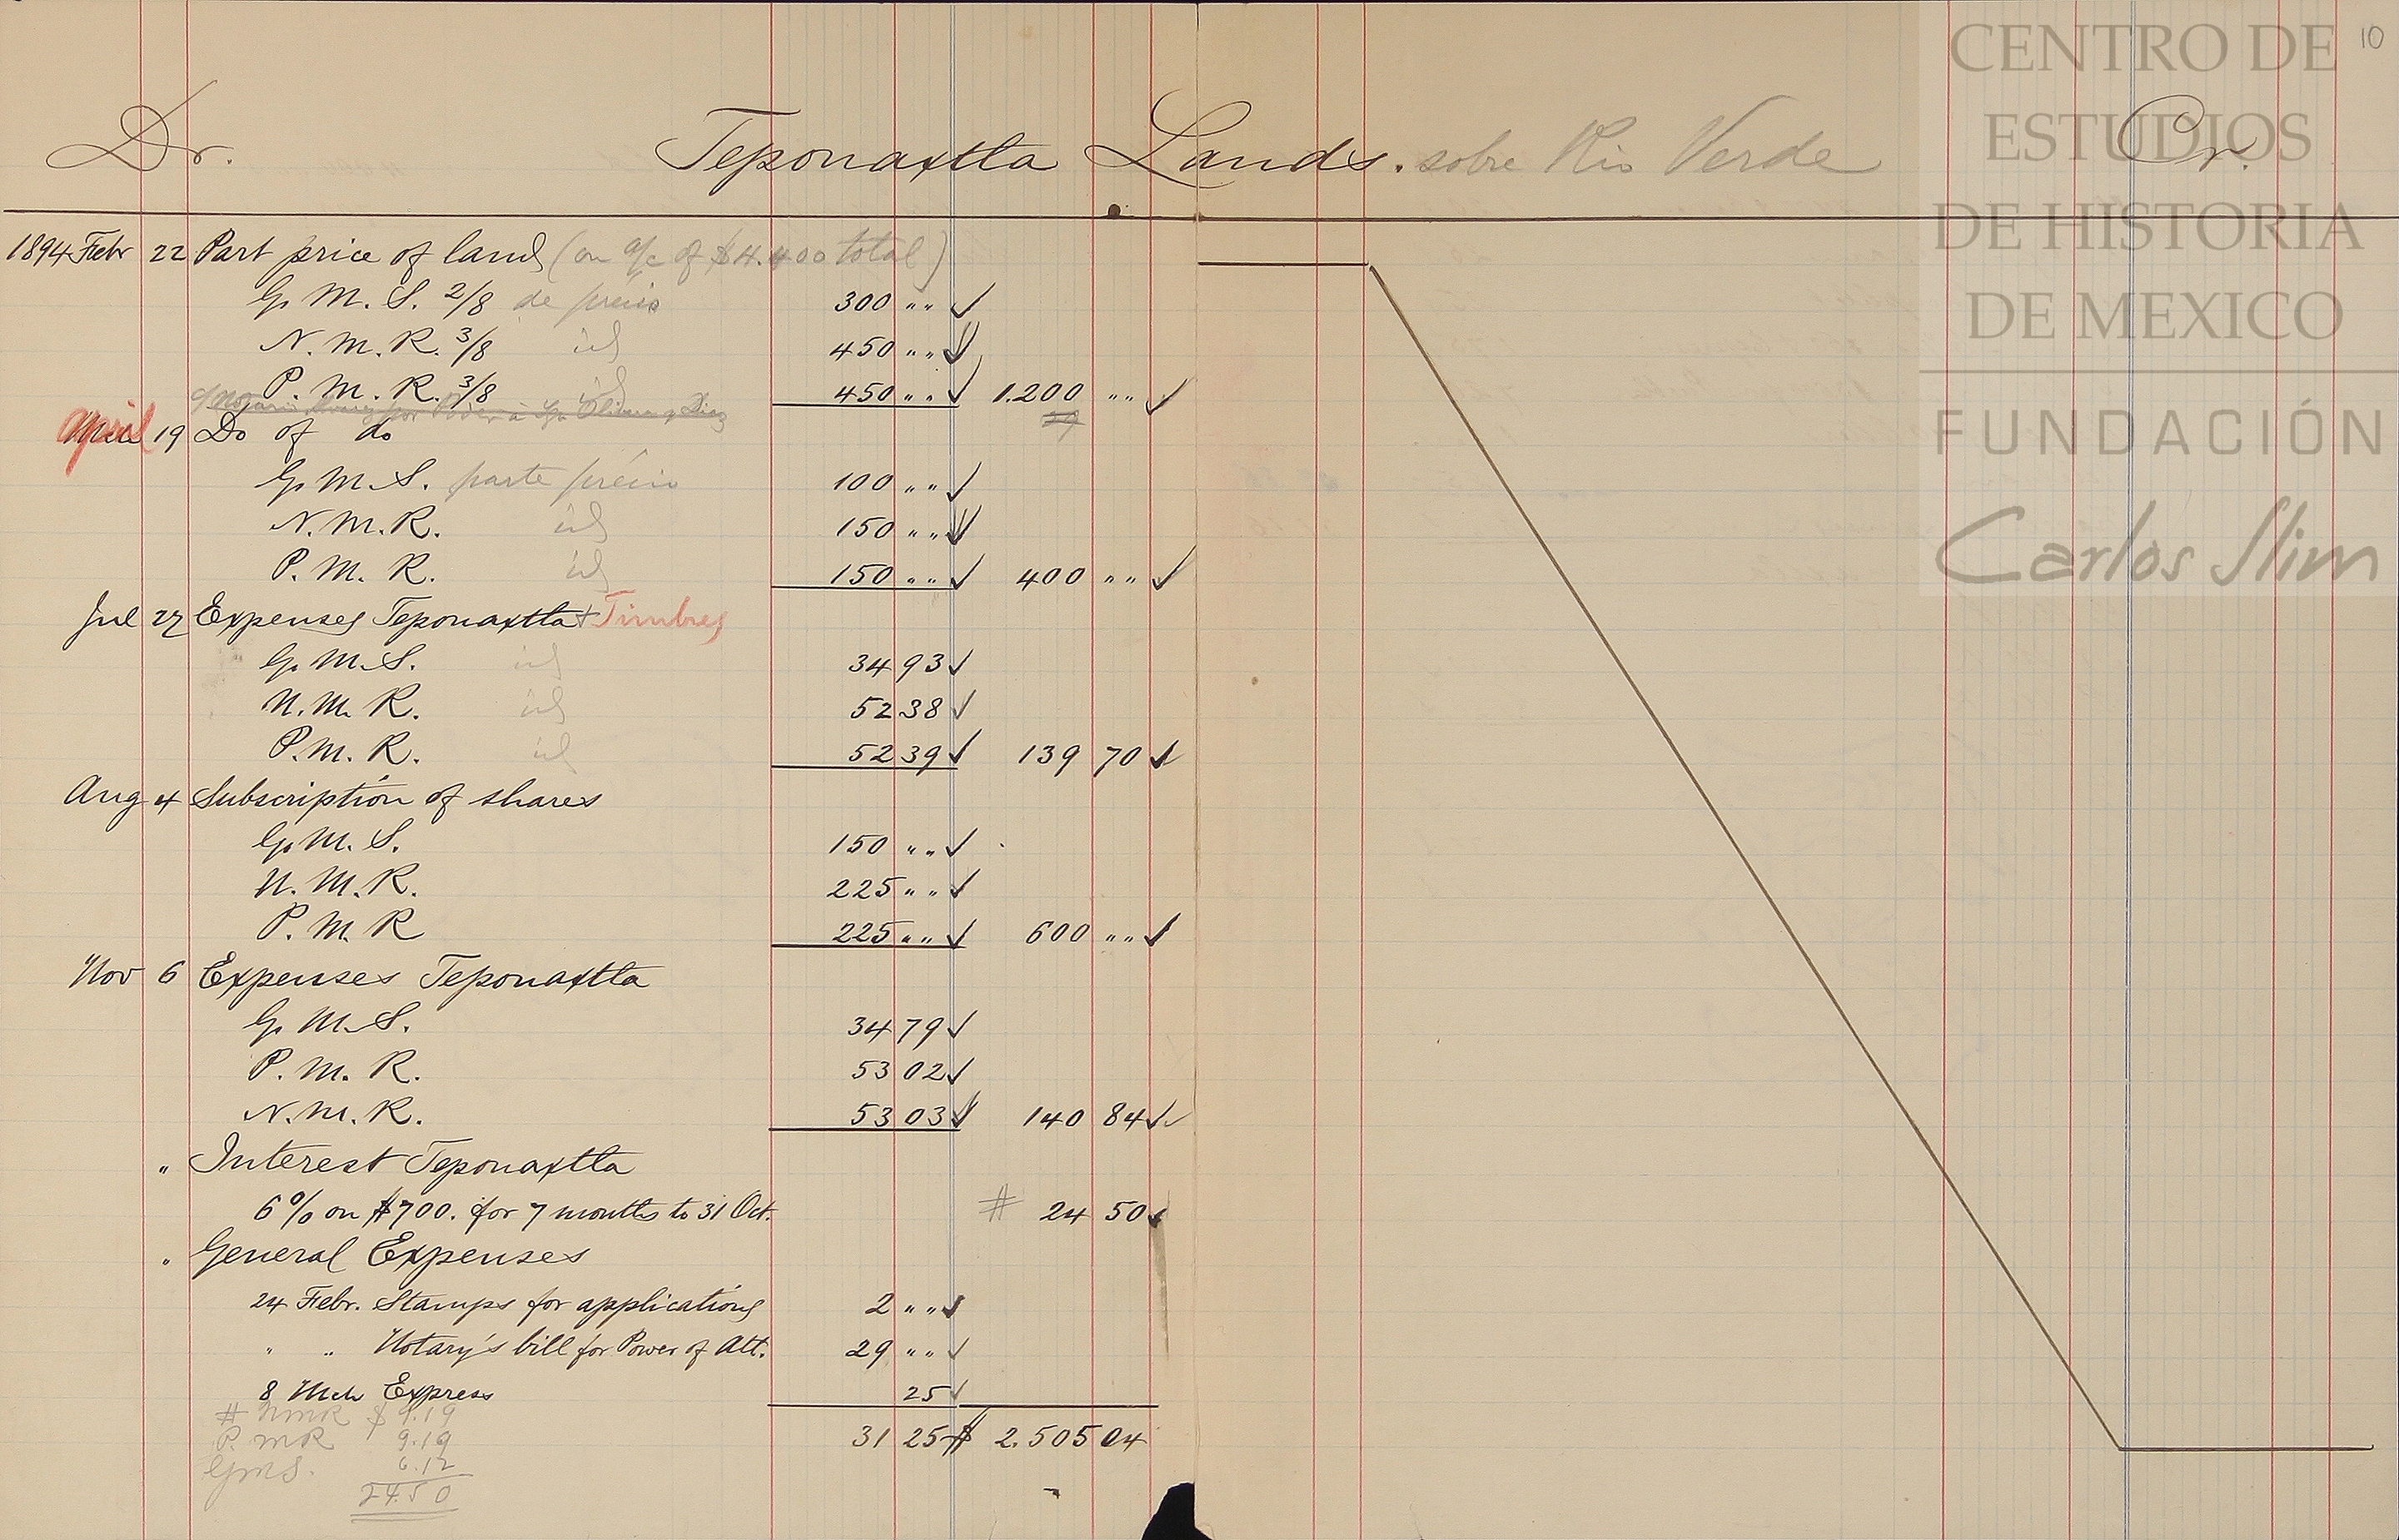 10
Dr. Teponaxtla Lands. sobre Rio Verde Cr.
1894 Febr 22 Part price of land (on a/c of $4.400 total)
G. M. S. 2/8 de précio 300 " "
N. M. R. 3/8 id 450 " "
P. M. R. 3/8 id 450 " " 1.200 " "
por Poder à
April 19 Do of do
G. M. S. parte précio 100 " "
N. M. R. id 150 " "
P. M. R. id 150 " " 400 " "
Jul 27 Expenses Teponaxtla + Timbres
G. M. S. id 34 93
N. M. R. id 52 38
P. M. R. id 52 39 139 70
Aug 4 Subscription of shares
G. M. S. 150 " "
N. M. R. 225 " "
P. M. R 225 " " 600 " "
Nov 6 Expenses Teponaxtla
G. M. S. 34 79
P. M. R. 53 02
N. M. R. 53 03 140 84
" Interest Teponaxtla
6% on $700. for 7 months to 31 Oct. # 24 50
" General Expenses
24 Febr. Stamps for applications 2 " "
" " Notary's bill for Power of Att. 29 " "
8 Mch Express 25
# NMR $ 9.19
31 25 $ 2.505 04
P. MR 9.19
GMS. 6.12
24.50
CENTRO DE
ESTUDIOS
DE HISTORIA
DE MEXICO
FUNDACIÓN
Carlos Slim